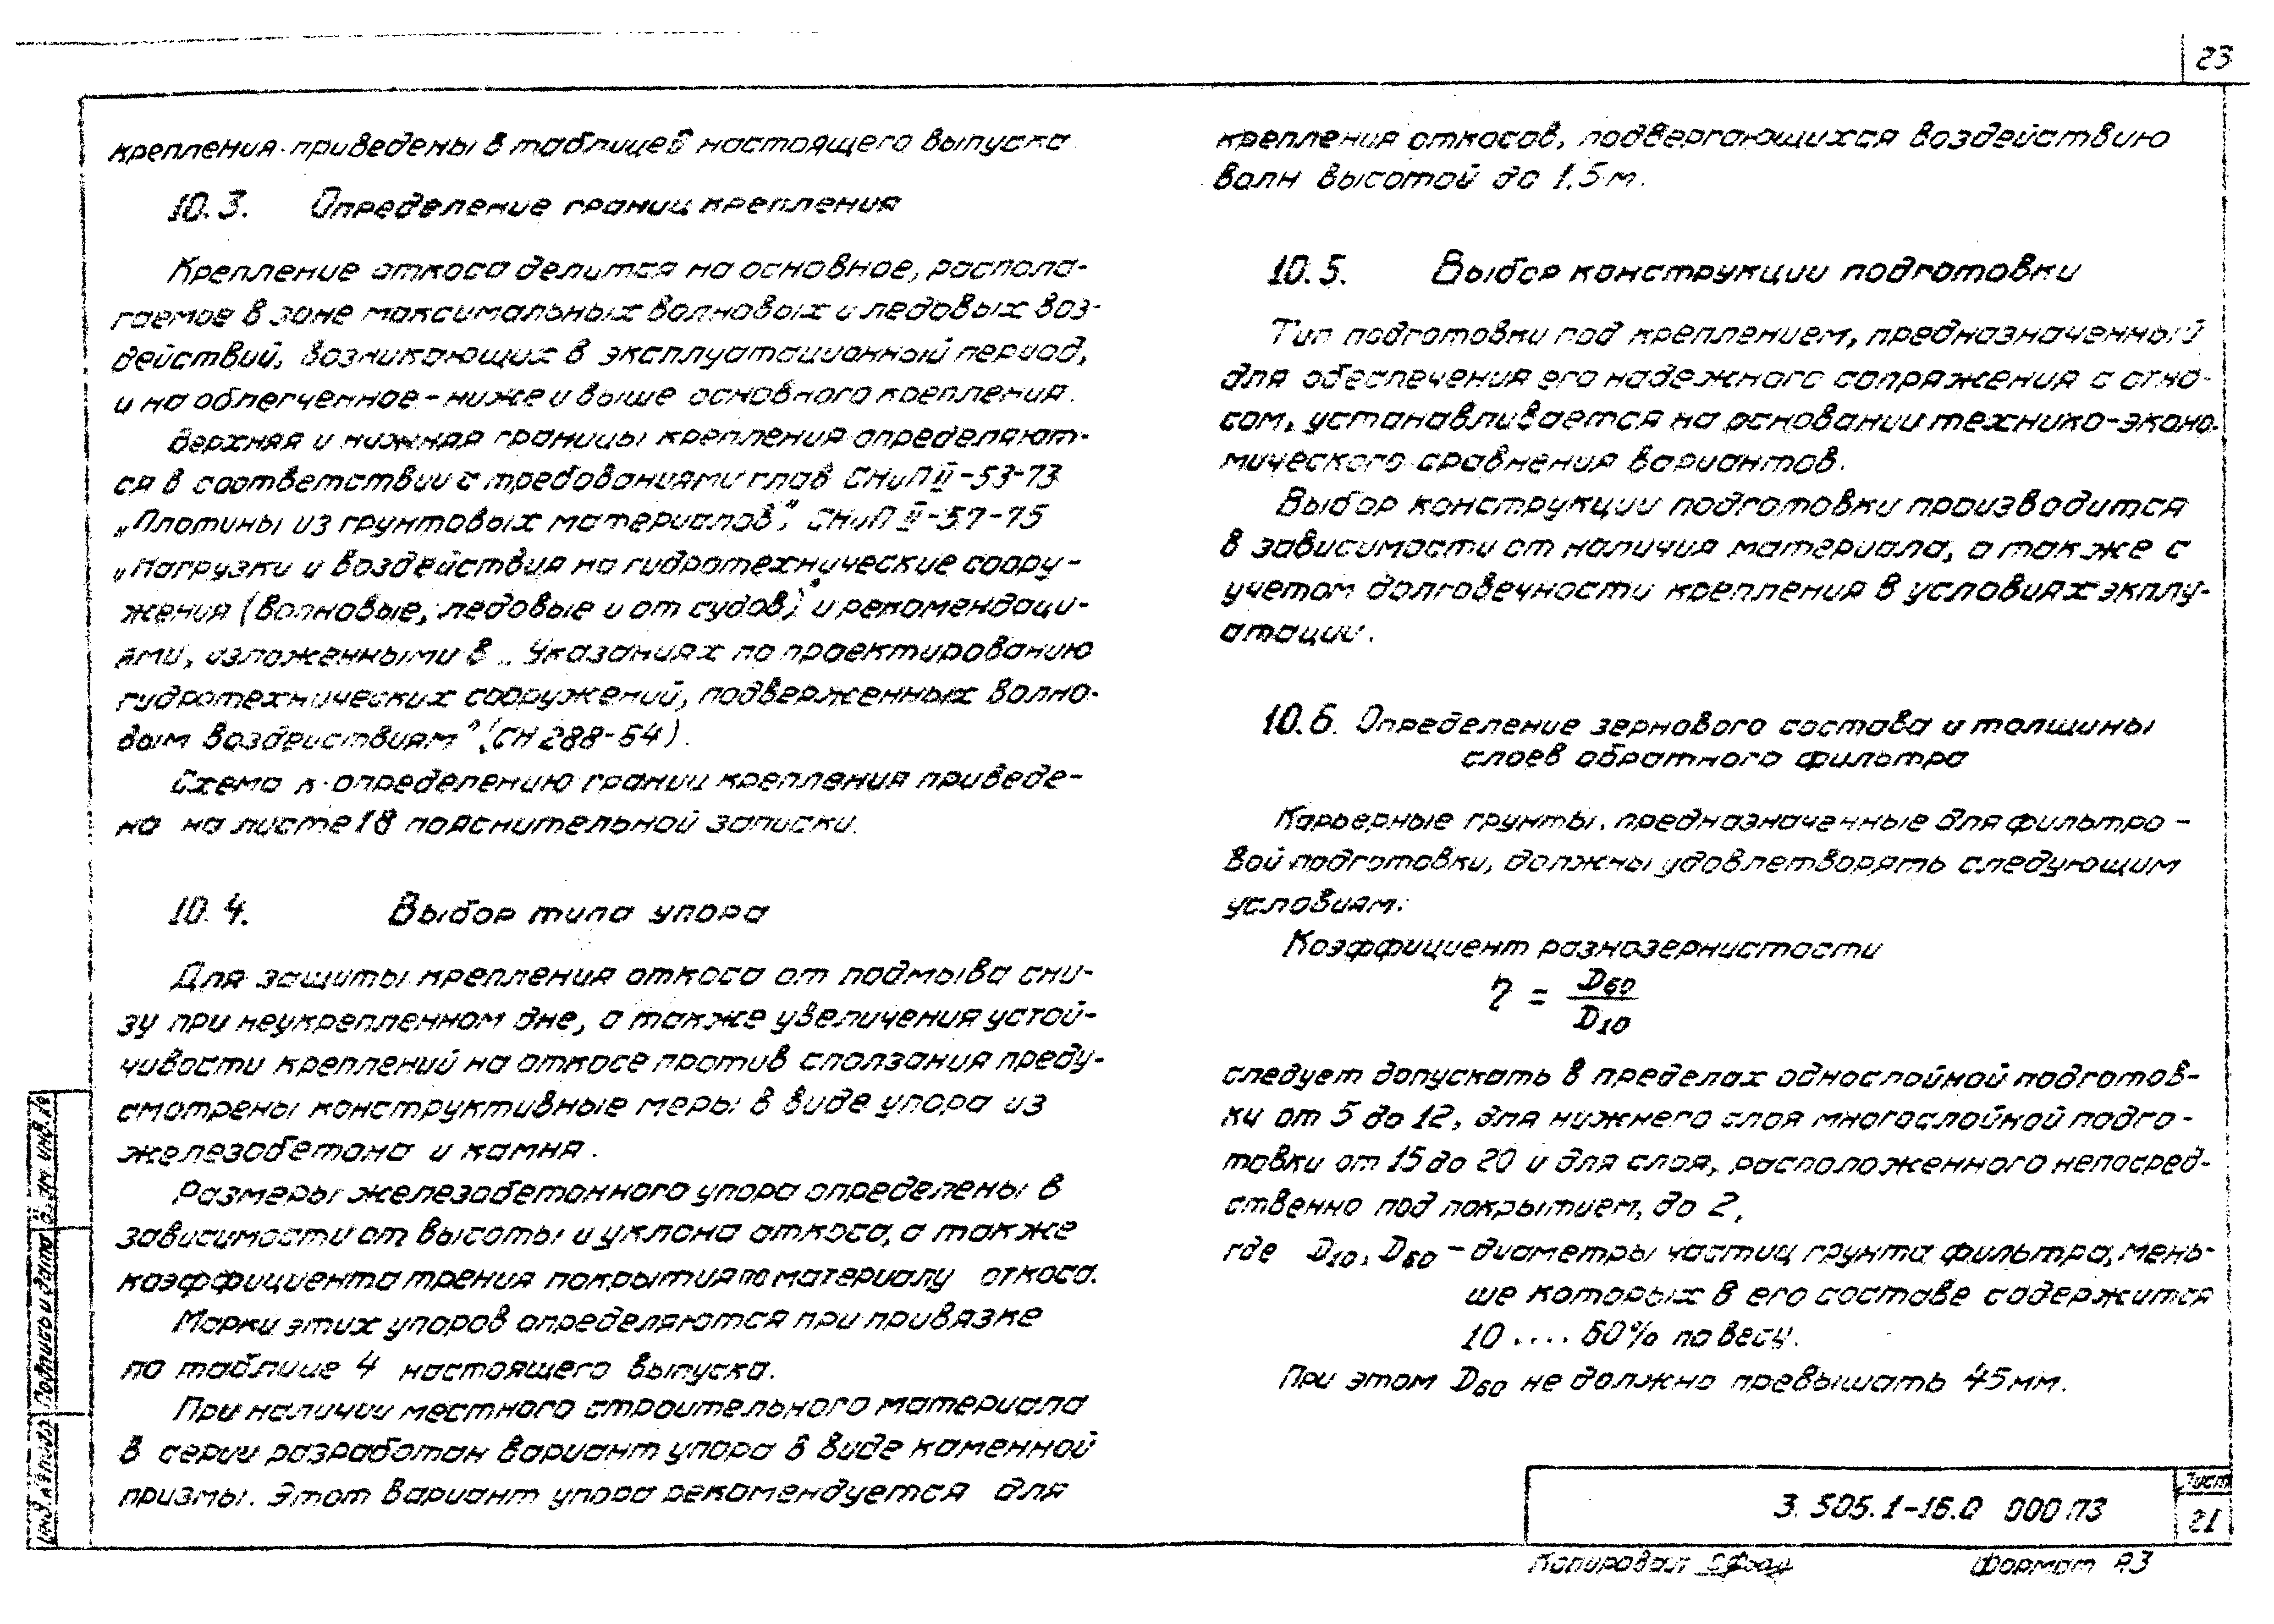 23
крепления приведены в таблице 6 настоящего выпуска.
10.3. Определение границ крепления
Крепление откоса делится на основное, распола-
гаемое в зоне максимальных волновых и ледовых воз-
действий, возникающих в эксплуатационный период,
и на облегченное - ниже и выше основного крепления.
Верхняя и нижняя границы крепления определяют-
ся в соответствии с требованиями глав СНиП II-53-73
„Плотины из грунтовых материалов", СНиП II-57-75
„Нагрузки и воздействия на гидротехнические соору-
жения (волновые, ледовые и от судов)" и рекомендаци-
ями, изложенными в „Указаниях по проектированию
гидротехнических сооружений, подверженных волно-
вым воздействиям" (СН 288-64).
Схема к определению границ крепления приведе-
на на листе 18 пояснительной записки.
10.4. Выбор типа упора
Для защиты крепления откоса от подмыва сни-
зу при неукрепленном дне, а также увеличения устой-
чивости креплений на откосе против сползания преду-
смотрены конструктивные меры в виде упора из
железобетона и камня.
Размеры железобетонного упора определены в
зависимости от высоты и уклона откоса, а также
коэффициента трения покрытия по материалу откоса.
Марки этих упоров определяются при привязке
по таблице 4 настоящего выпуска.
При наличии местного строительного материала
в серии разработан вариант упора в виде каменной
призмы. Этот вариант упора рекомендуется для
крепления откосов, подвергающихся воздействию
волн высотой до 1,5 м.
10.5. Выбор конструкции подготовки
Тип подготовки под креплением, предназначенный
для обеспечения его надежного сопряжения с отко-
сом, устанавливается на основании технико-эконо-
мического сравнения вариантов.
Выбор конструкции подготовки производится
в зависимости от наличия материала, а также с
учетом долговечности крепления в условиях экплу-
атации.
10.6. Определение зернового состава и толщины
слоев обратного фильтра
Карьерные грунты, предназначенные для фильтро-
вой подготовки, должны удовлетворять следующим
условиям:
Коэффициент разнозернистости
η = D60 / D10
следует допускать в пределах однослойной подготов-
ки от 5 до 12, для нижнего слоя многослойной подго-
товки от 15 до 20 и для слоя, расположенного непосред-
ственно под покрытием, до 2,
где D10, D60 - диаметры частиц грунта фильтра, мень-
ше которых в его составе содержится
10 .... 60% по весу.
При этом D60 не должно превышать 45 мм.
3.505.1-16.0 000 ПЗ
Лист
21
Копировал
Формат А3
Инв. № подл.
Подпись и дата
Взам. инв. №